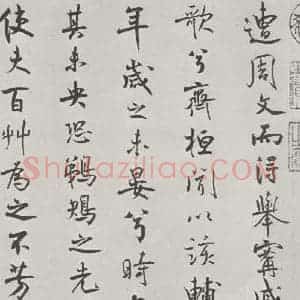 遭周文而得舉甯戚
歌兮齊桓聞以該輔
年歲之未晏兮時
其未央恐鵜鴂之先
使夫百艸為之不芳
Shufaziliao.com